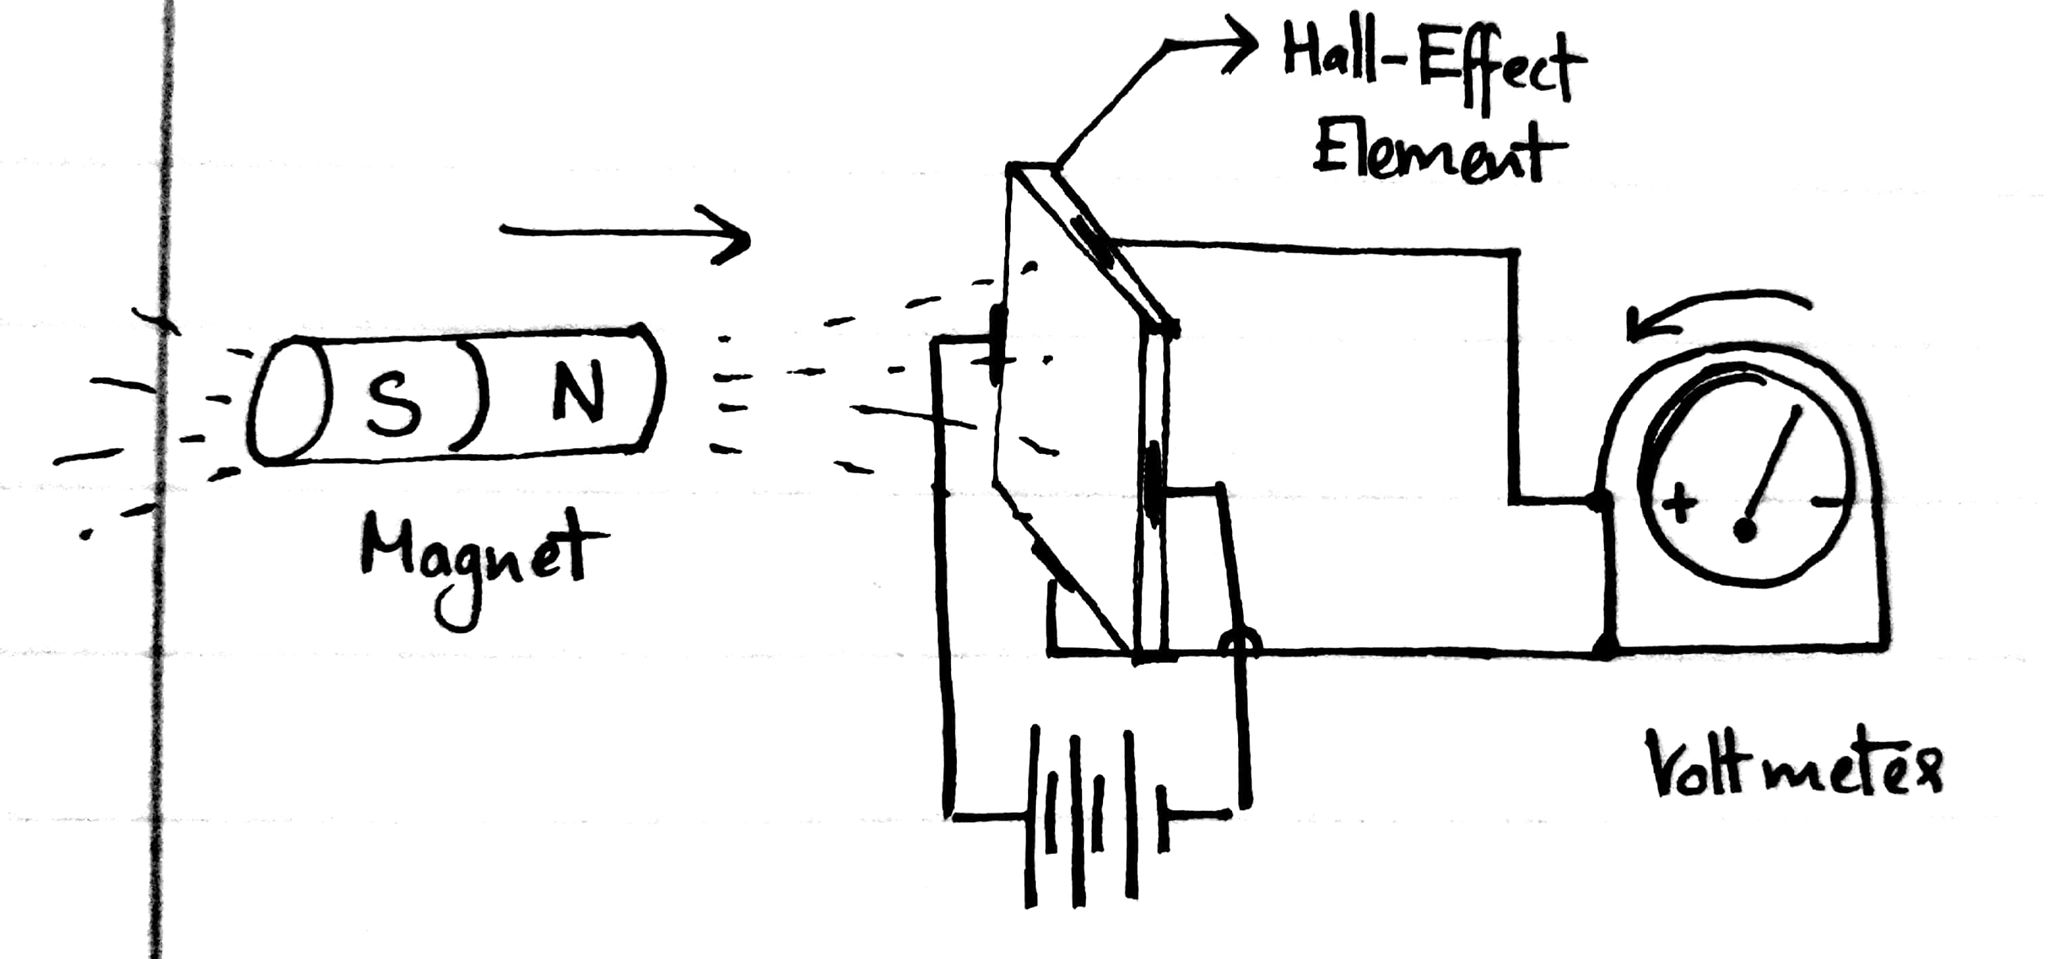 Hall-Effect
Element
S N
Magnet
+ -
Voltmeter